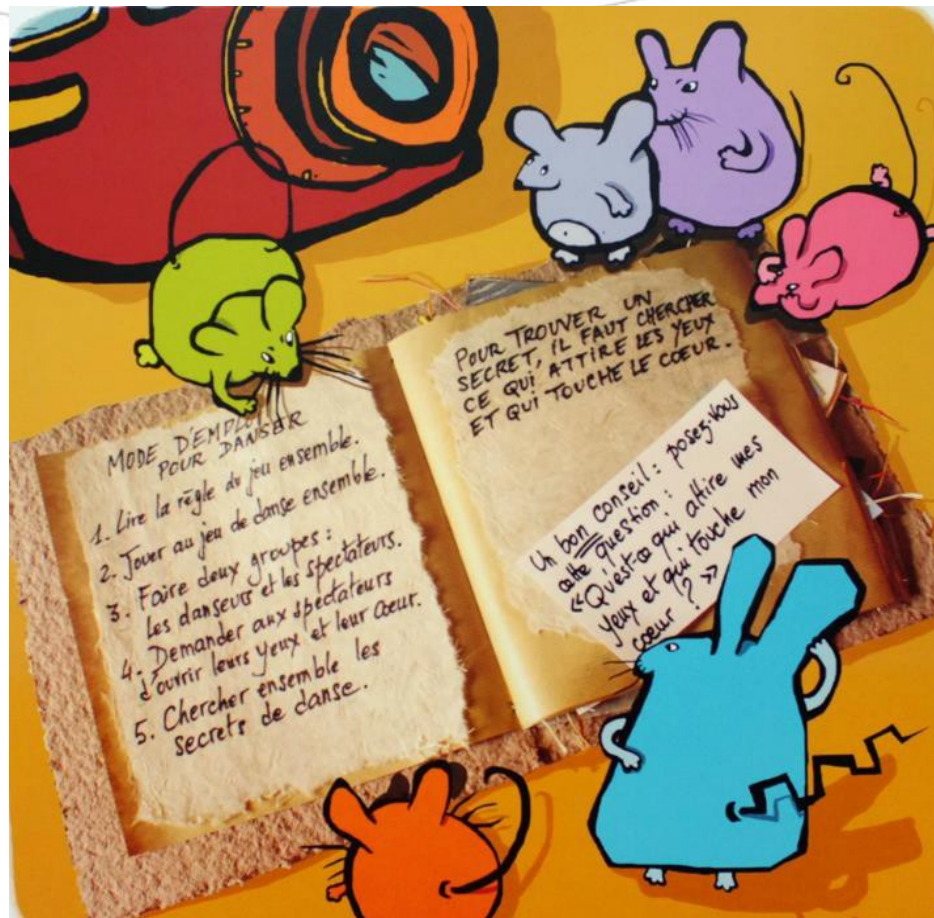 MODE D'EMPLOI
POUR DANSER
1. Lire la règle du jeu ensemble.
2. Jouer au jeu de danse ensemble.
3. Faire deux groupes :
les danseurs et les spectateurs.
4. Demander aux spectateurs
d'ouvrir leurs yeux et leur cœur.
5. Chercher ensemble les
secrets de danse.
POUR TROUVER UN
SECRET, IL FAUT CHERCHER
CE QUI ATTIRE LES YEUX
ET QUI TOUCHE LE COEUR.
Un bon conseil : posez-vous
cette question :
«Qu'est-ce qui attire mes
yeux et qui touche mon
coeur ? »